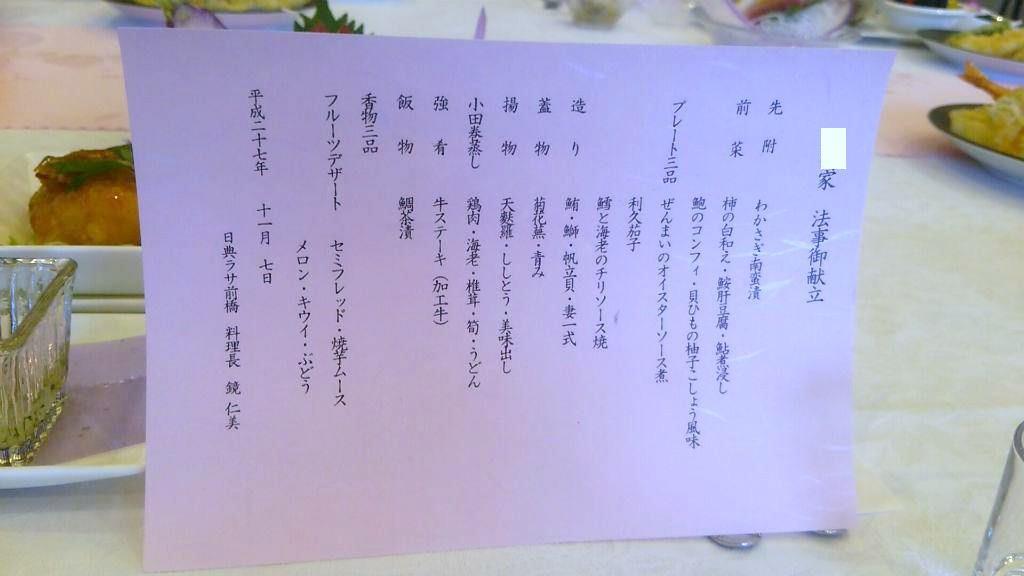 家 法事御献立
先附 わかさぎ南蛮漬
前菜 柿の白和え・鮟肝豆腐・鮎煮浸し
鮑のコンフィ・貝ひもの柚子こしょう風味
プレート三品 ぜんまいのオイスターソース煮
利久茄子
鱈と海老のチリソース焼
造り 鮪・鰤・帆立貝・妻一式
蓋物 菊花蕪・青み
揚物 天麩羅・ししとう・美味出し
小田巻蒸し 鶏肉・海老・椎茸・筍・うどん
強肴 牛ステーキ（加工牛）
飯物 鯛茶漬
香物三品
フルーツデザート セミフレッド・焼芋ムース
メロン・キウイ・ぶどう
平成二十七年 十一月 七日
日典ラサ前橋 料理長 鏡 仁美